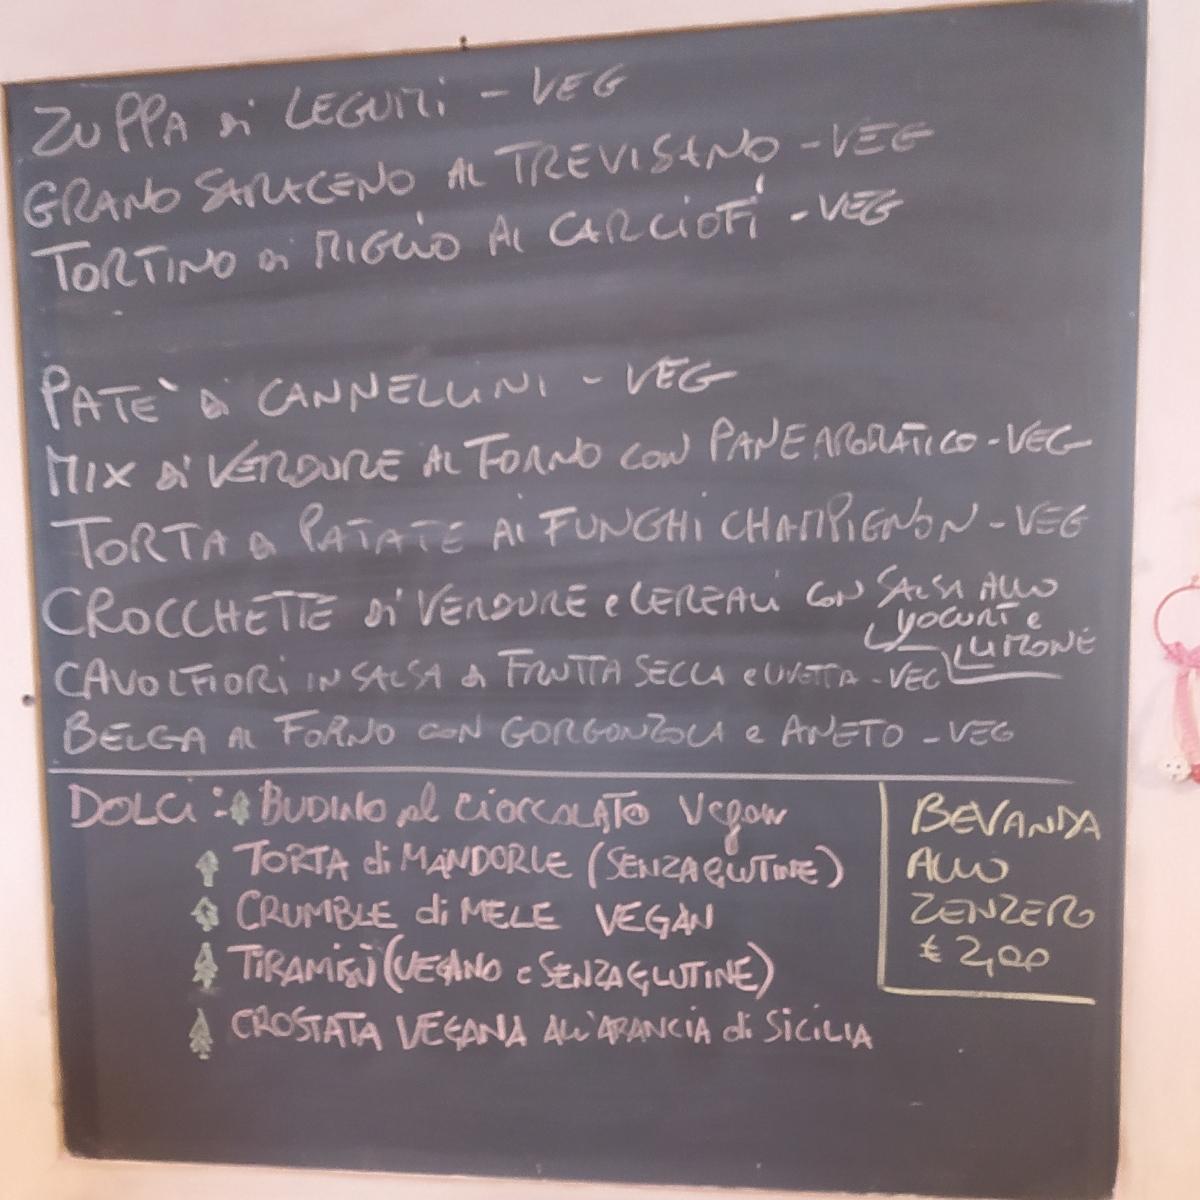 ZUPPA di LEGUMI - VEG
GRANO SARACENO AL TREVISANO - VEG
TORTINO di MIGLIO AI CARCIOFI - VEG
PATE' di CANNELLINI - VEG
MIX di VERDURE AL FORNO CON PANE AROMATICO - VEG
TORTA di PATATE AI FUNGHI CHAMPIGNON - VEG
CROCCHETTE di VERDURE e CEREALI CON SALSA ALLO
YOGURT e
LIMONE
CAVOLFIORI IN SALSA di FRUTTA SECCA e UVETTA - VEG
BELGA AL FORNO CON GORGONZOLA e ANETO - VEG
DOLCI: BUDINO al CIOCCOLATO Vegan
TORTA di MANDORLE (SENZA GLUTINE)
CRUMBLE di MELE VEGAN
TIRAMISÙ (VEGANO e SENZA GLUTINE)
CROSTATA VEGANA ALL'ARANCIA di SICILIA
BEVANDA
ALLO
ZENZERO
€ 2,00